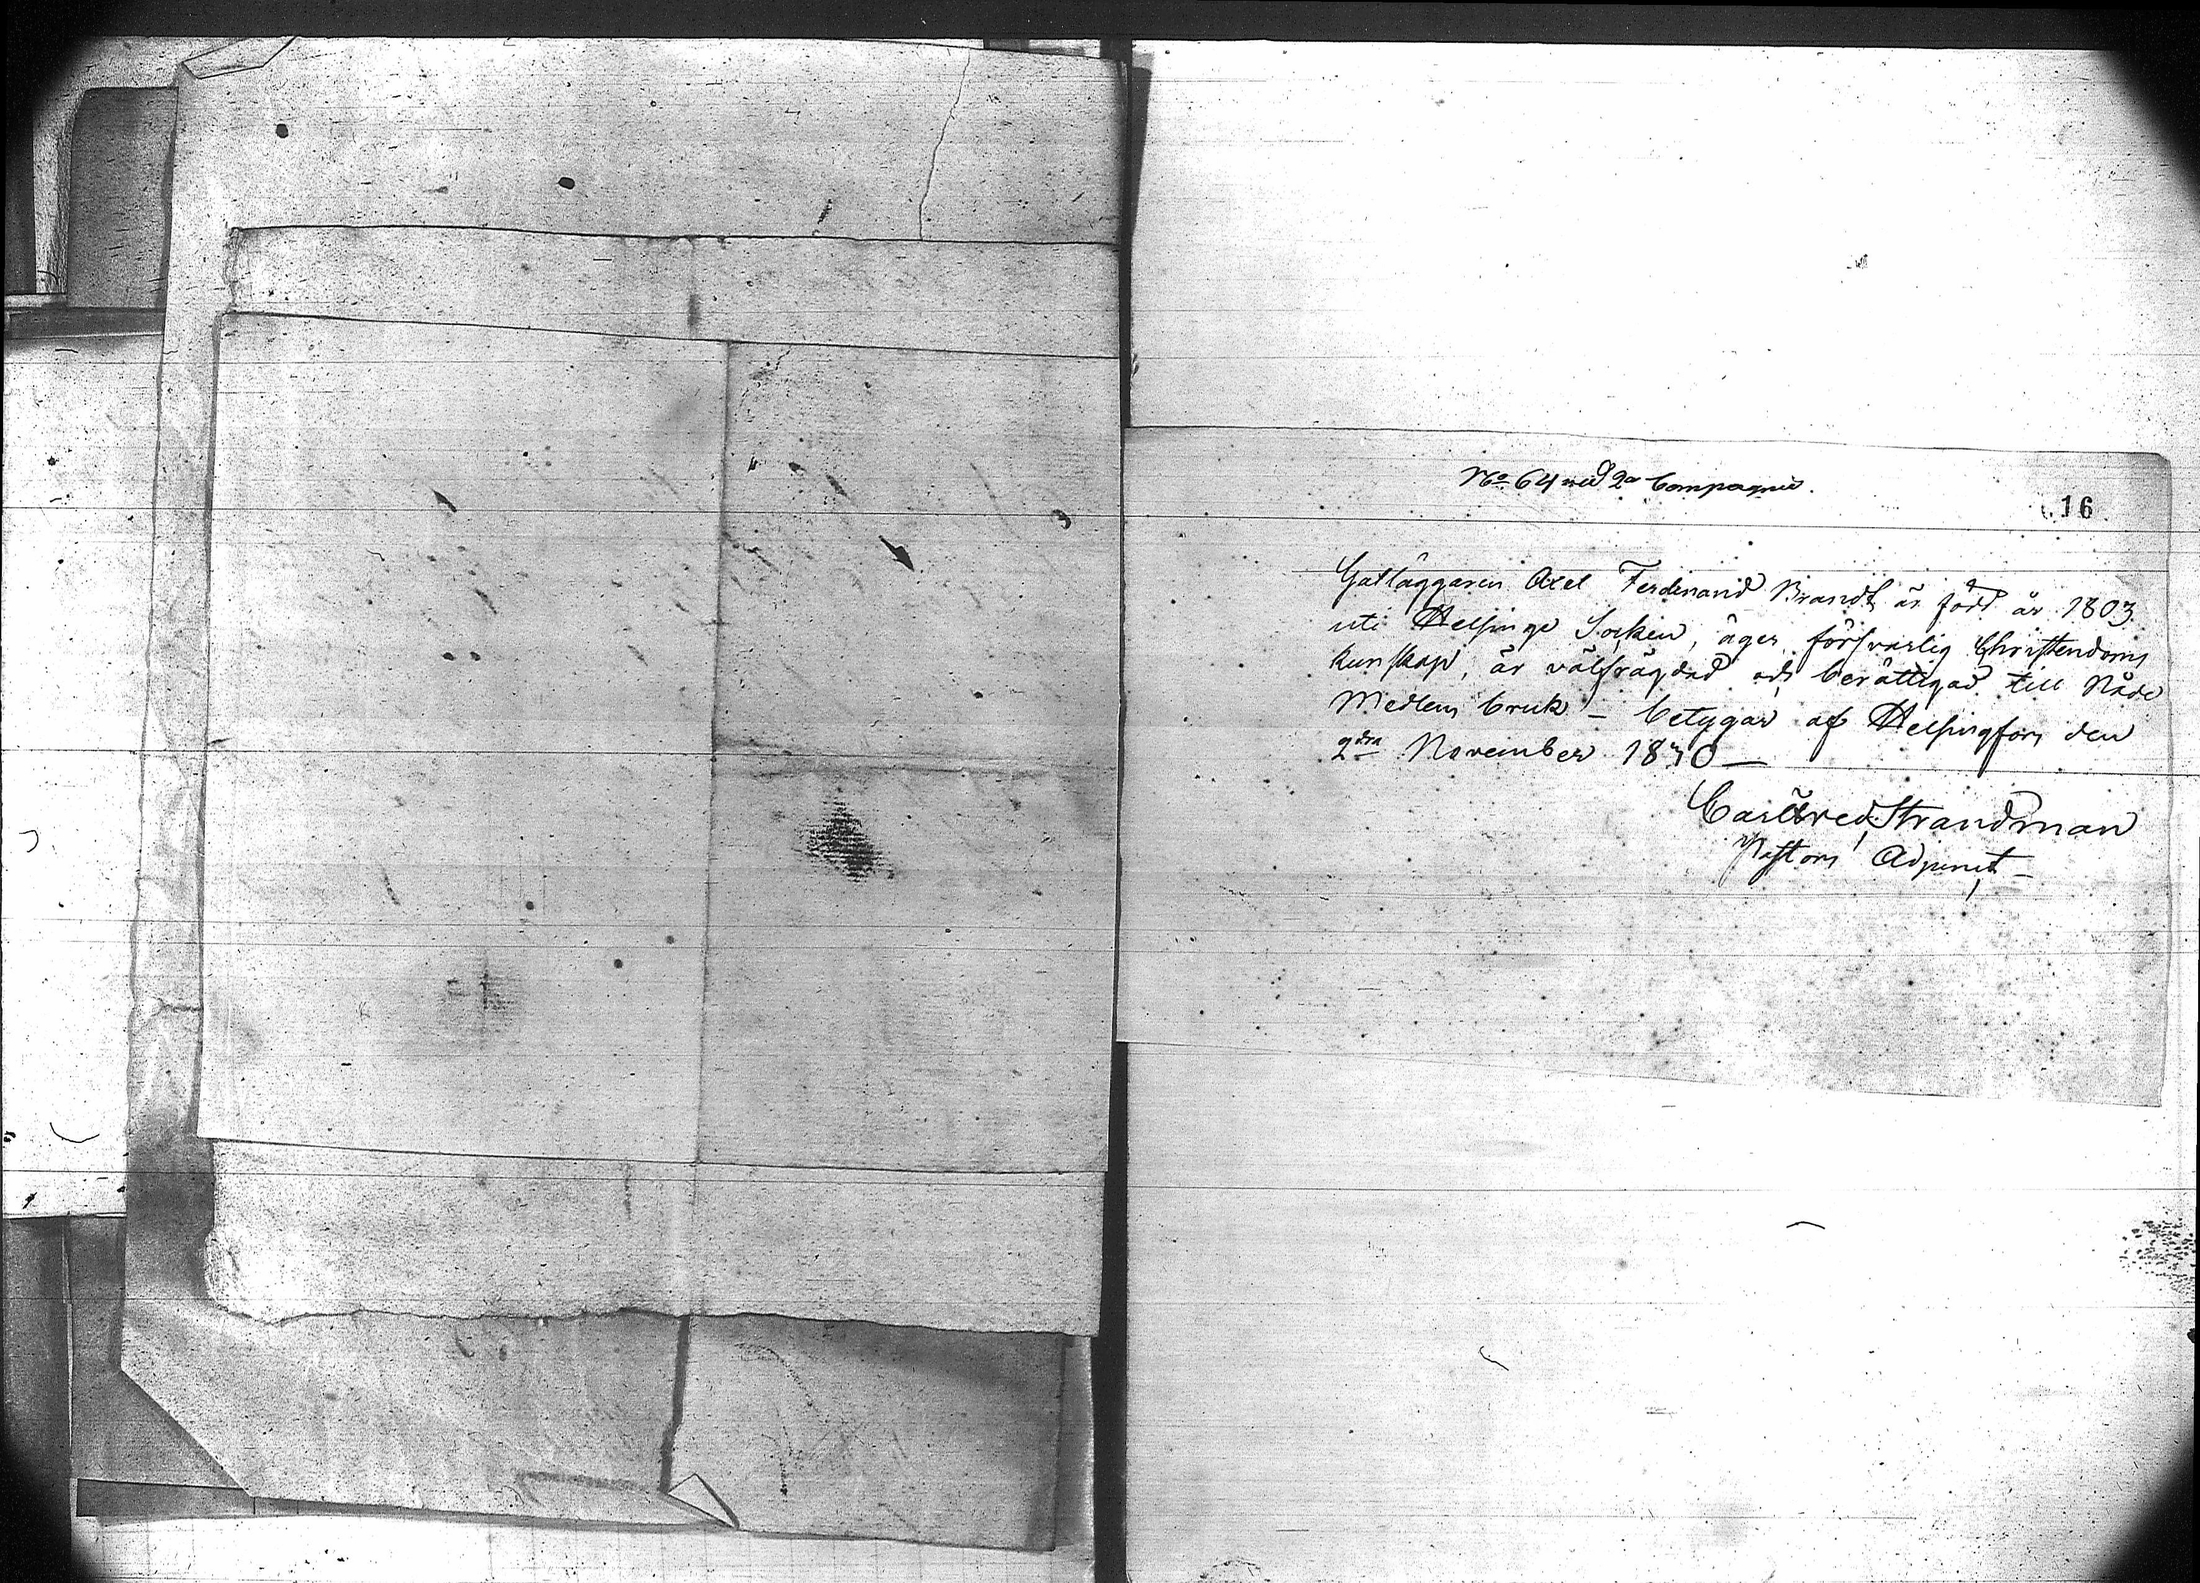 No 64 wid 2a Compagnie.
16
Gatläggaren Axel Ferdinand Brandt är född år 1803
uti Helsinge Socken, äger försvarlig Christendoms
kunskap, är välfrägdad och berättigad till Nåde
Medlens bruk – betygar af Helsingfors den
2dra November 1830 –
Carl Strandman
Pastors Adjunct –